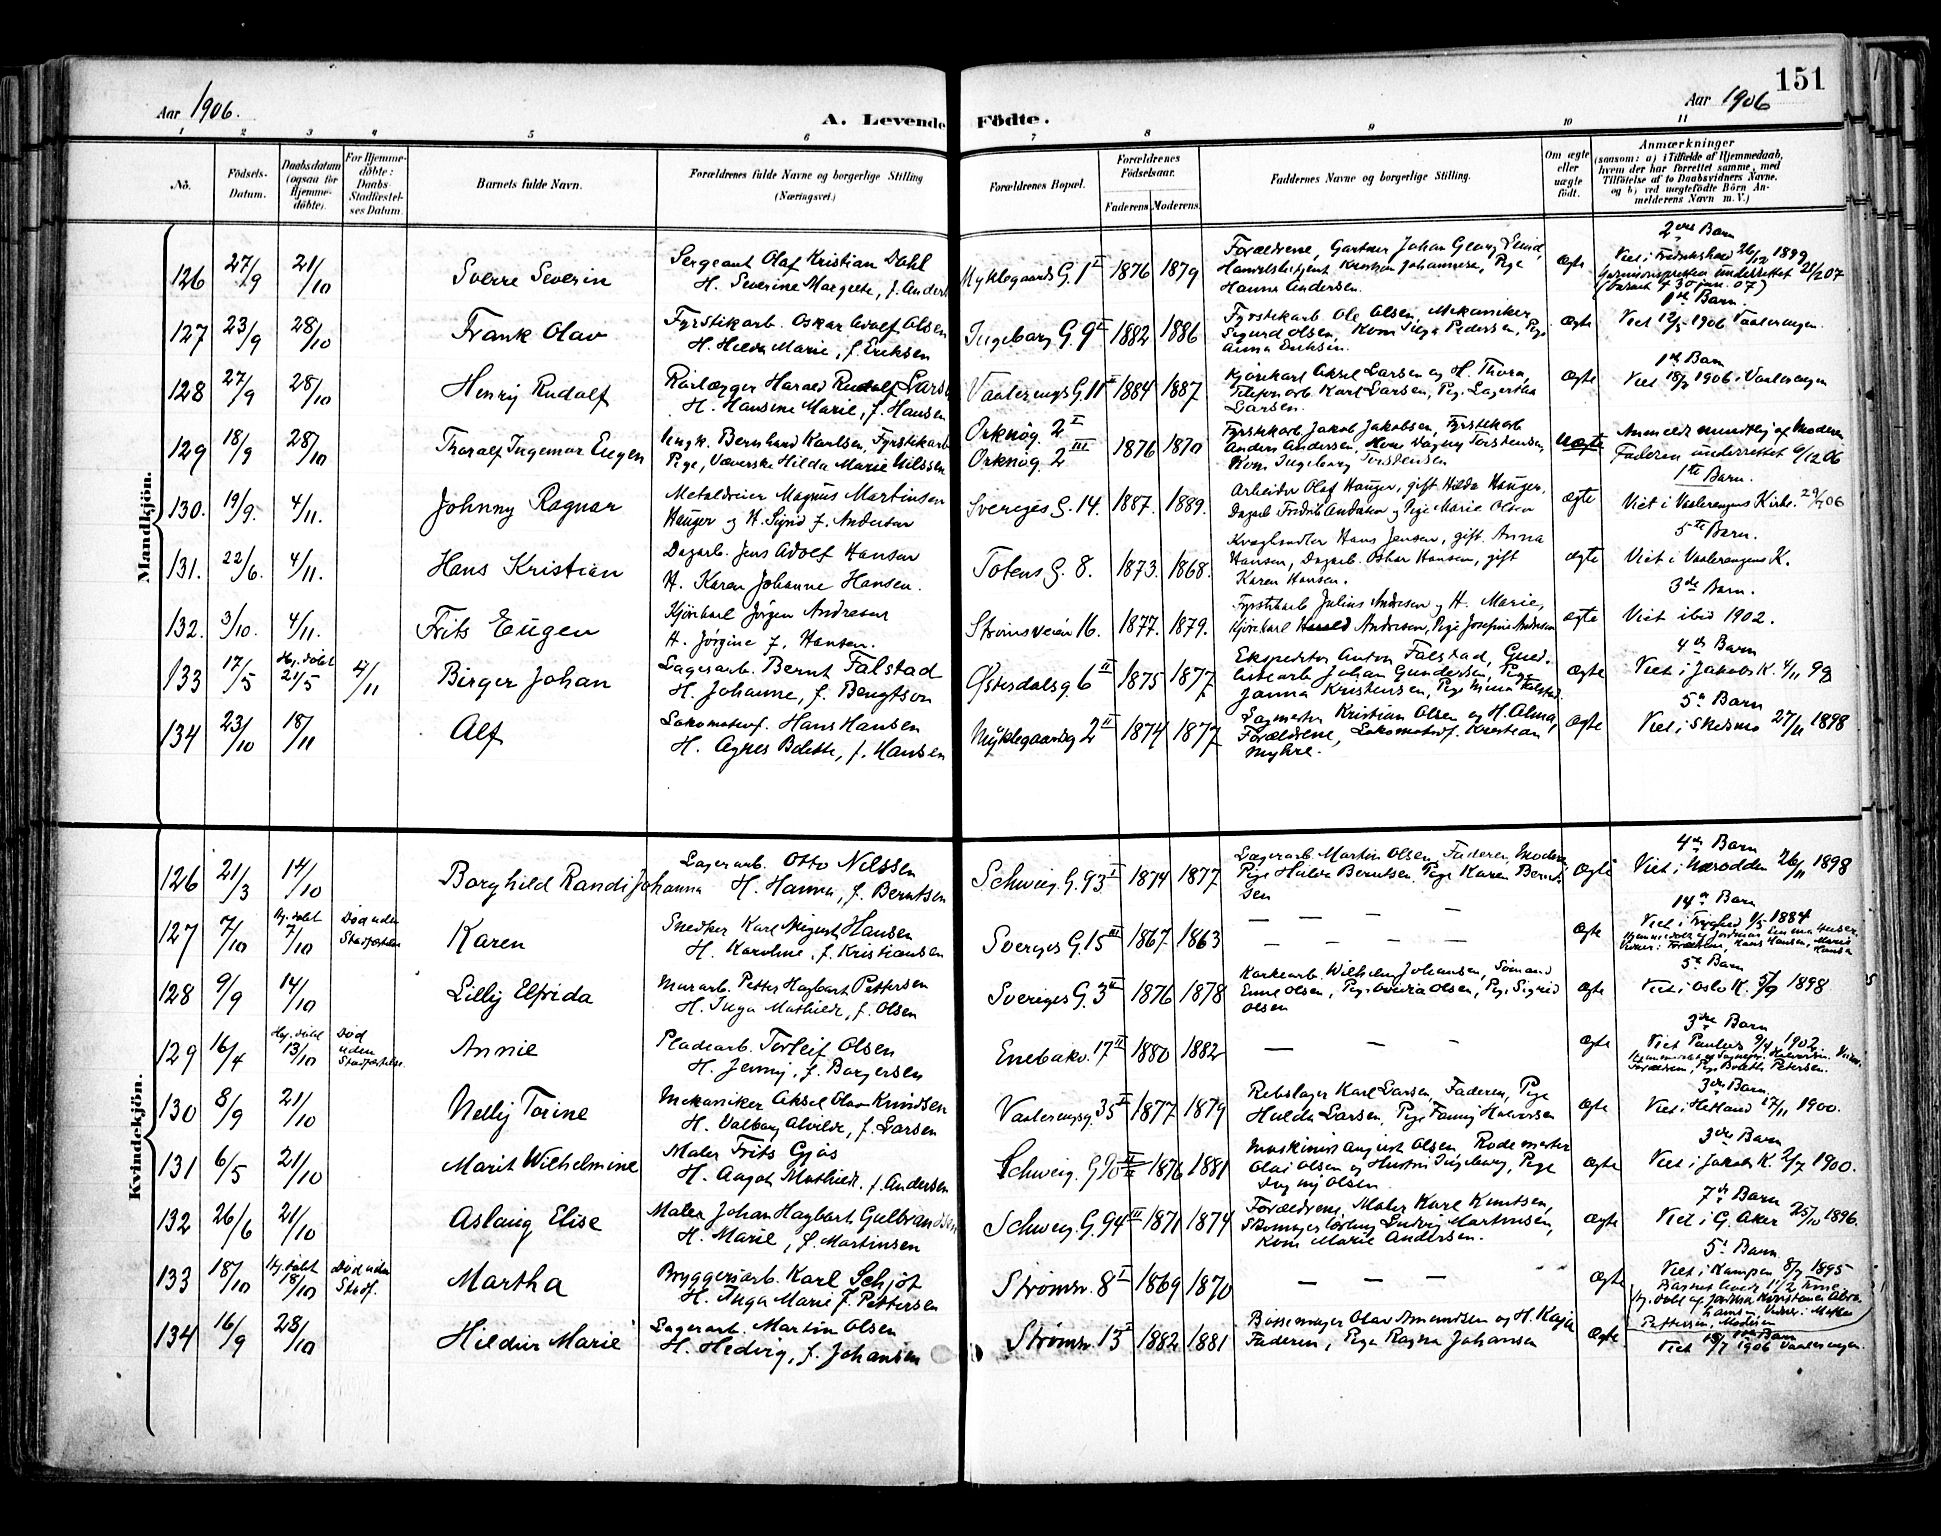 151
Aar 1906.
A. Levende Födte.
Aar 1906
1 2 3 4 5 6 7 8 9 10 11
No.
Födsels-Datum.
Daabsdatum (ogsaa for Hjemme-döbte).
For Hjemme-döbte: Daabs-Stadfæstel-ses Datum.
Barnets fulde Navn.
Forældrenes fulde Navne og borgerlige Stilling (Næringsvei.)
Forældrenes Bopæl.
Forældrenes Födselsaar.
Faderens. Moderens.
Faddernes Navne og borgerlige Stilling.
Om ægte eller uægte födt.
Anmærkninger
(saasom: a) i Tilfælde af Hjemmedaab, hvem der har forrettet samme, med Tilföielse af to Daabsvidners Navne, og b) ved uægtefödte Börn An-melderens Navn m. V.)
Mandkjön.
126 27/9 21/10 Sverre Severin
Sergeant Olaf Kristian Dahl
H. Severine Margrete, f. Anders
Myklegaards G. 1 I 1876 1879
Forældrene, Gartner Johan Georg
Handelsbetjent Kristian Johannesen, Pige
Hanna Andersen.
ægte
2det Barn
Viet i Fredrikshald 26/12 1899
127 23/9 28/10 Frank Olav
Fyrstikarb. Oskar Adolf Olsen
H. Hilda Marie, f. Eriksen
Ingeborg G. 9 I 1882 1886
Fyrstikarb. Ole Olsen, Mekaniker
Sigurd Olsen, Kom Inga Pedersen, Pige
Anna Eriksen.
ægte
1ste Barn.
Viet 12/5 1906 Vaalerengen.
128 27/9 28/10 Henrij Rudolf
Rörlægger Harald Rudolf Larse
H. Hansine Marie, f. Hansen
Vaalerengs G. 11 II 1884 1887
Kjörekarl Aksel Larsen og H. Thora,
Telefonarb. Karl Larsen, Pig. Lagertha
Larsen.
ægte
1ste Barn
Viet 18/3 1906 i Vaalerengen
129 18/9 28/10 Thoralf Ingemar Eugen
Ungk. Bernhard Karlsen, Fyrstikarb
Pige, Væverske Hilda Marie Nilssen
Orknög. 2 I
Orknög. 2 III 1876 1870
Fyrstikarb Jakob Jakobsen, Fyrstikarb
Anders Andersen, Kone Dagny Torstensen,
Kom Ingeborg Torstensen
uægte
Anmeldt mundtlig af Moderen
Faderen underrettet 6/12 06
130. 19/9. 4/11. Johnny Ragnar
Metaldreier Magnus Martinsen
Hauger og H. Sigrid f. Andersen
Sveriges G. 14. 1887. 1889.
Arbeider Olaf Hauger, gift Hilda Hauger,
Dagarb Fredrik Andersen og Pige Marie Olsen
ægte
1ste Barn.
Viet i Vaalerengens Kirke. 29/7 06
131. 22/6. 4/11. Hans Kristian
Dagarb. Jens Adolf Hansen
H. Karen Johanne Hansen.
Totens G. 8. 1873. 1868.
Kvæghandler Hans Jensen, gift Anna
Hansen, Dagarb. Oskar Hansen, gift
Karen Hansen.
ægte
5te Barn.
Viet i Vaalerengens K.
132. 3/10. 4/11. Frits Eugen
Kjörekarl Jörgen Andresen
H. Jörgine f. Hansen.
Strömsveien 16. 1877. 1879.
Fyrstikarb Julius Andresen og H. Marie,
Kjörekarl Harald Andresen, Pige Josefine Andresen
ægte
3die Barn.
Viet ibid 1902.
133 17/5 Hj. döbt 24/5 4/11 Birger Johan
Lagerarb. Bernt Falstad
H. Johanne, f. Bengtson
Østerdalsg 6 II 1875 1877
Ekspeditör Anton Falstad,
Johan Gundersen, Pige
Janna Kristensen, Pige Mina Falstad.
ægte
4de Barn
Viet i Jakobs K. 4/11 99
134 23/10 18/11 Alf
Lokomotivf. Hans Hansen
H. Agnes Bolette, f. Hansen
Myklegaardsg 2 II 1874 1877
Sagmester Kristian Olsen og H. Alma,
Forældrene, Lokomotivf. Kristian
Myhre.
ægte
5te Barn
Viet i Skedsmo 27/11 1898
Kvindekjön.
126 21/3 14/10 Borghild Randi Johanna
Lagerarb. Otto Nilssen
H. Hanna, f. Berntsen
Schweig. G. 93 I 1874 1877
Lagerarb. Martin Olsen, Faderen, Moderen
Pige Hulda Berntsen, Pige Karen Bernt-
sen
ægte
4de Barn
Viet i Næsodden 26/11 1898
127 7/10 Hj. döbt 7/10 Död uden Stadfæstelse Karen
Snedker Karl August Hansen
H. Karoline, f. Kristiansen
Sveriges G. 15 III 1867 1863
— — — —
— — — —
ægte
14de Barn
128 9/9 14/10 Lillij Elfrida
Murarb. Petter Hagbart Pettersen
H. Inga Mathilde, f. Olsen
Sveriges G. 3 II 1876 1878
Korkearb. Wilhelm Johansen, Sömand
Emil Olsen, Pige Olivia Olsen, Pige Sigrid
Olsen
ægte
5te Barn
Viet i Oslo K. 5/9 1898
129 16/4 Hj. döbt 13/10 Död uden Stadfæstelse Annie
Pladearb. Torleif Olsen
H. Jenny, f. Borgersen
Enebakv. 17 II 1880 1882
— — —
ægte
3die Barn
Viet Paulus 9/4 1902
130 8/9 21/10 Nellij Torine
Mekaniker Aksel Olav Knudsen
H. Valborg Alvilde, f. Larsen
Vaalerengsg. 35 I 1877 1879
Rebslager Karl Larsen, Faderen, Pige
Hulda Larsen, Pige Fanny Halvorsen
ægte
3die Barn.
Viet i Hetland 17/11 1900.
131 6/5 21/10 Marit Wilhelmine
Maler Frits Gjös
H. Aagot Mathilde, f. Andersen
Schweig. G. 90 1876 1881
Maskinist August Olsen Rodemester
Olai Olsen og Hustru Ingeborg, Pige
Dagny Olsen.
ægte
3die Barn
Viet i Jakobs K. 2/7 1900.
132 26/6 21/10 Aslaug Elise
Maler Johan Hagbart Gulbrandsen
H. Marie, f. Martinsen
Schweig. G. 94 III 1871 1874
Forældrene, Maler Karl Knutsen,
Ludvig Martinsen,
Kom Marie Andersen.
ægte
7de Barn
Viet i G. Aker 25/10 1896.
133 18/10 Hj. döbt 18/10 Död uden Stadf. Martha
Bryggeriarb. Karl Schjöt
H. Inga Marie f. Pettersen
Strömsv. 8 I 1869 1870
— — —
ægte
5te Barn
Viet i Kampen 8/9 1895
Barnet levede 1 1/2 Time
Pettersen, Moderen
134 16/9 28/10 Hildur Marie
Lagerarb. Martin Olsen
H. Hedvig, f. Johansen
Strömsv. 13 I 1882 1881
Bössemager Olav Amundsen og H. Kaja
Faderen, Pige Ragna Johansen
ægte
1ste Barn
Viet 15/7 1906 Vaalerengen.